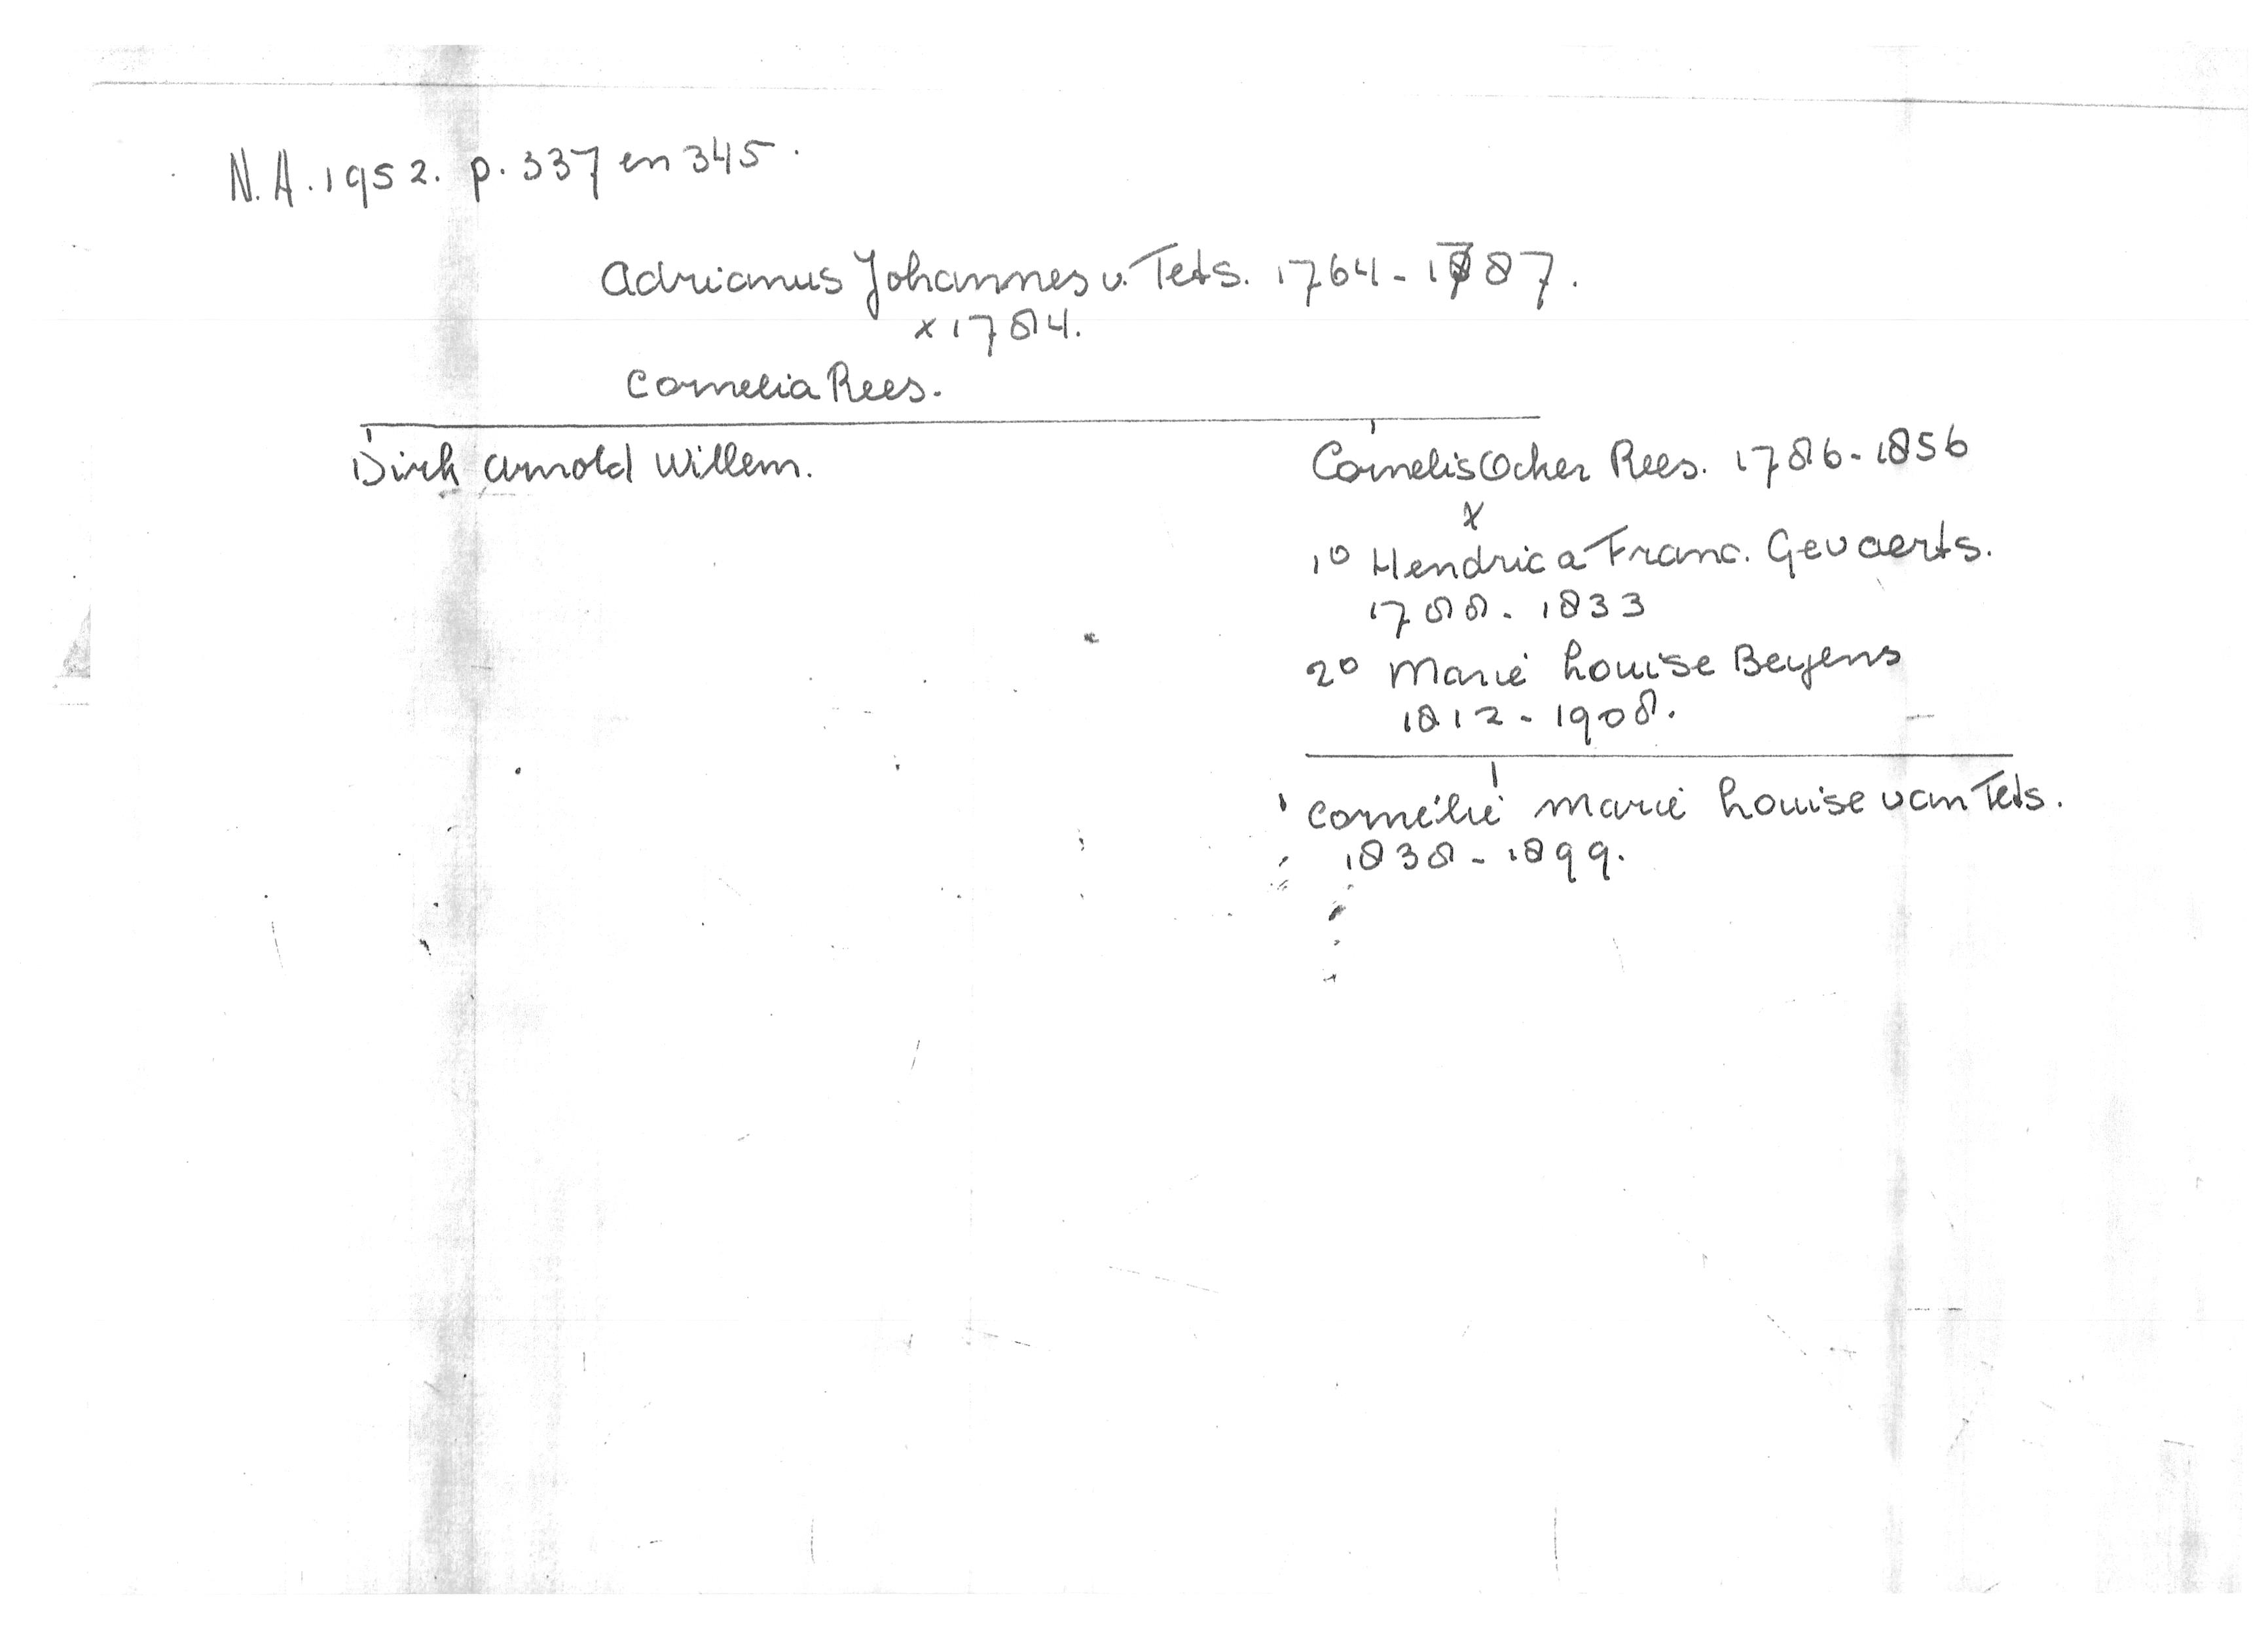 N.A. 1952. p. 337 en 345.
Adrianus Johannes v. Tets. 1764 - 1787.
x 1784.
Cornelia Rees.
Dirk Arnold Willem.
Cornelis Ocker Rees. 1786 - 1856
x
1o Hendrica Franc. Gevaerts.
1788 - 1833
2o Marie Louise Beyens
1812 - 1908.
Cornélie Marie Louise van Tets.
1838 - 1899.